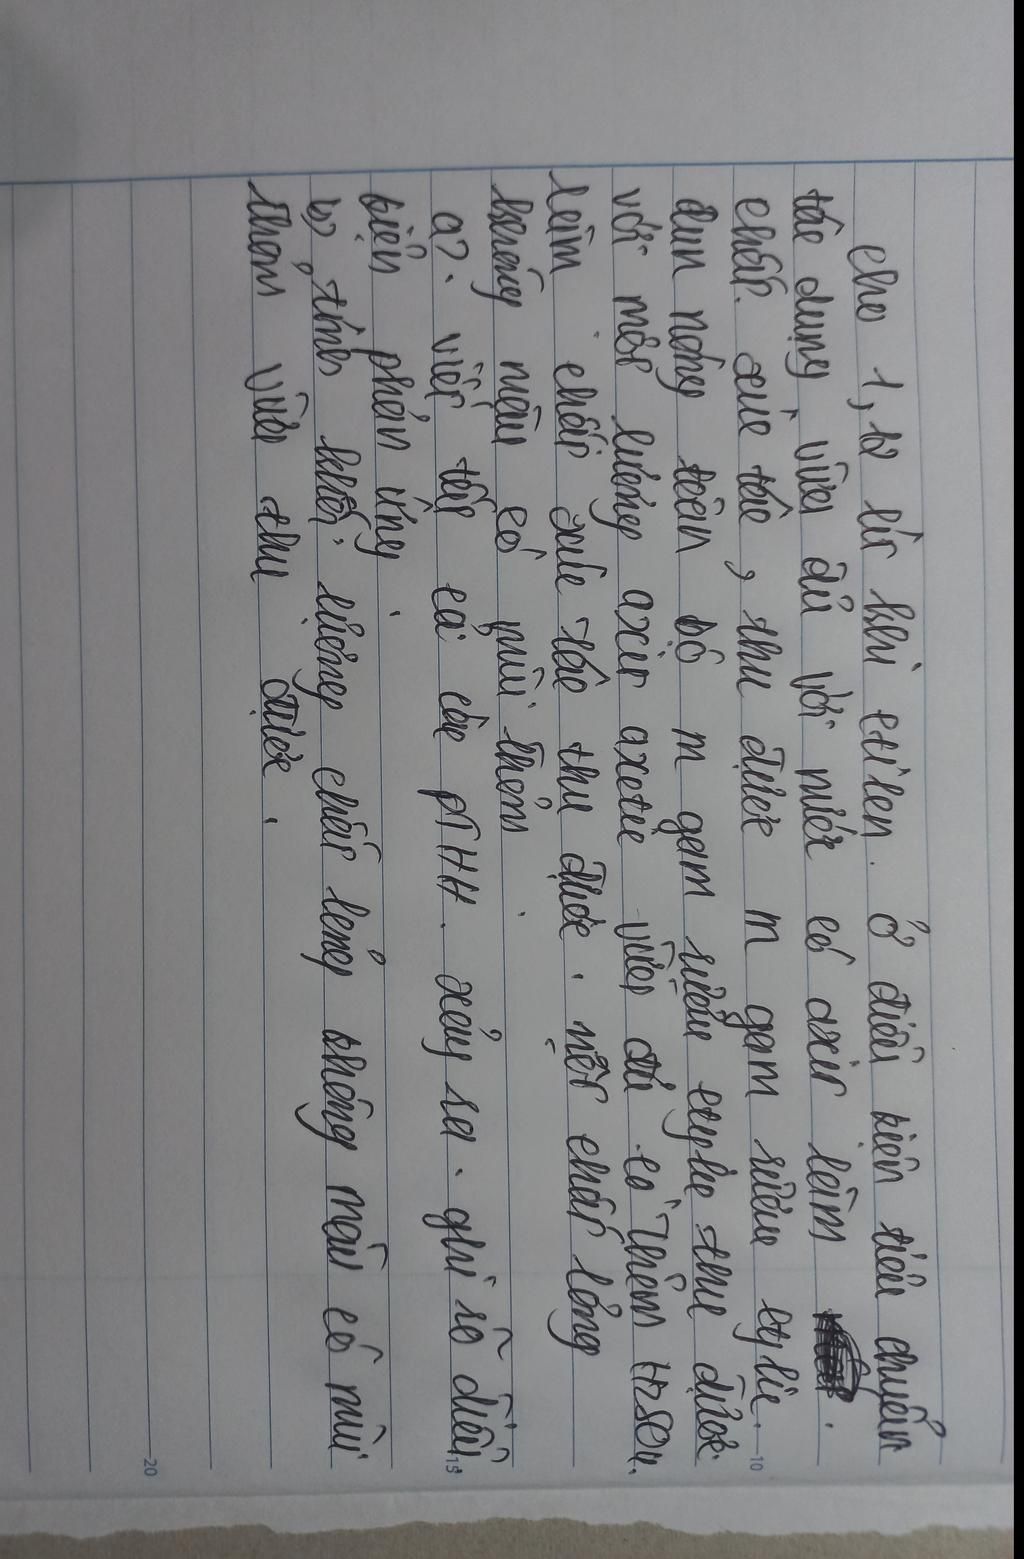 cho 1,12 lít khí etilen. ở điều kiện tiêu chuẩn
tác dụng vừa đủ với nước có axit làm
chất. xúc tác, thu được m gam rượu etylic.
đun nóng toàn bộ m gam rượu etylic thu được
với một lượng axit axetic vừa đủ có thêm H2SO4.
làm chất xúc tác thu được. một chất lỏng
không màu có mùi thơm
a?. viết tất cả các PTHH. xảy ra. ghi rõ điều
kiện phản ứng.
b, tính khối lượng chất lỏng không màu có mùi
thơm vừa thu được.
10
15
20